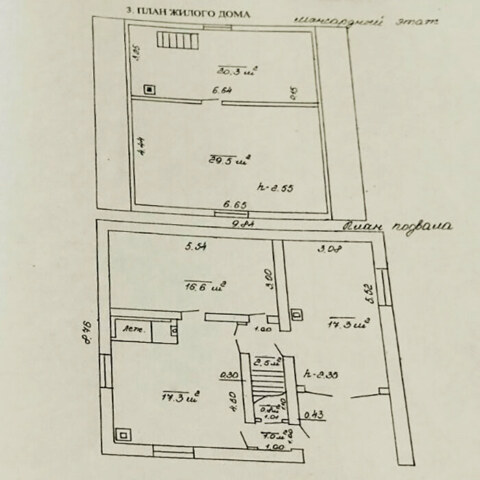 3. ПЛАН ЖИЛОГО ДОМА
мансардный этаж
3.05
20.3 м²
6.64
4.44
29.5 м²
h-2.55
6.65
9.84
План подвала
5.54
3.08
16.6 м²
3.00
5.52
8.76
1.00
17.3 м²
2.5 м²
h-2.35
0.30
17.3 м²
4.50
0.43
1.01
1.00